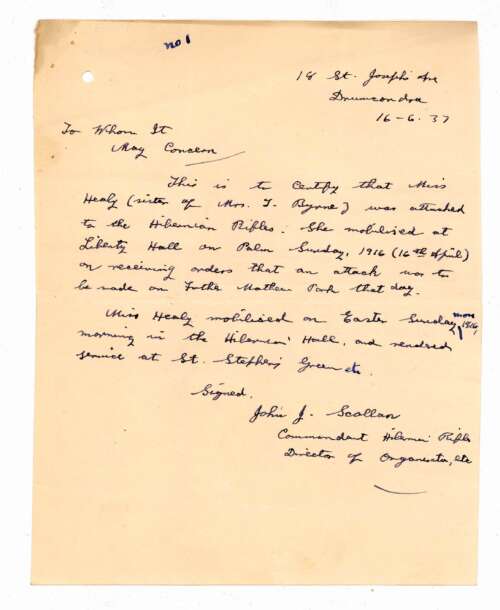 no 1
18 St. Joseph's Ave
Drumcondra
16-6.37
To Whom It
May Concern
This is to Certify that Miss
Healy (sister of Mrs. T. Byrne) was attached
to the Hibernian Rifles. She mobilised at
Liberty Hall on Palm Sunday, 1916 (16th April)
on receiving orders that an attack was to
be made on Father Mathew Park that day.
Miss Healy mobilised on Easter Sunday mon 1916,
morning in the Hibernian Hall, and rendered
service at St. Stephens Green etc.
Signed.
John J. Scollan
Commandant Hibernian Rifles
Director of Organisation, etc